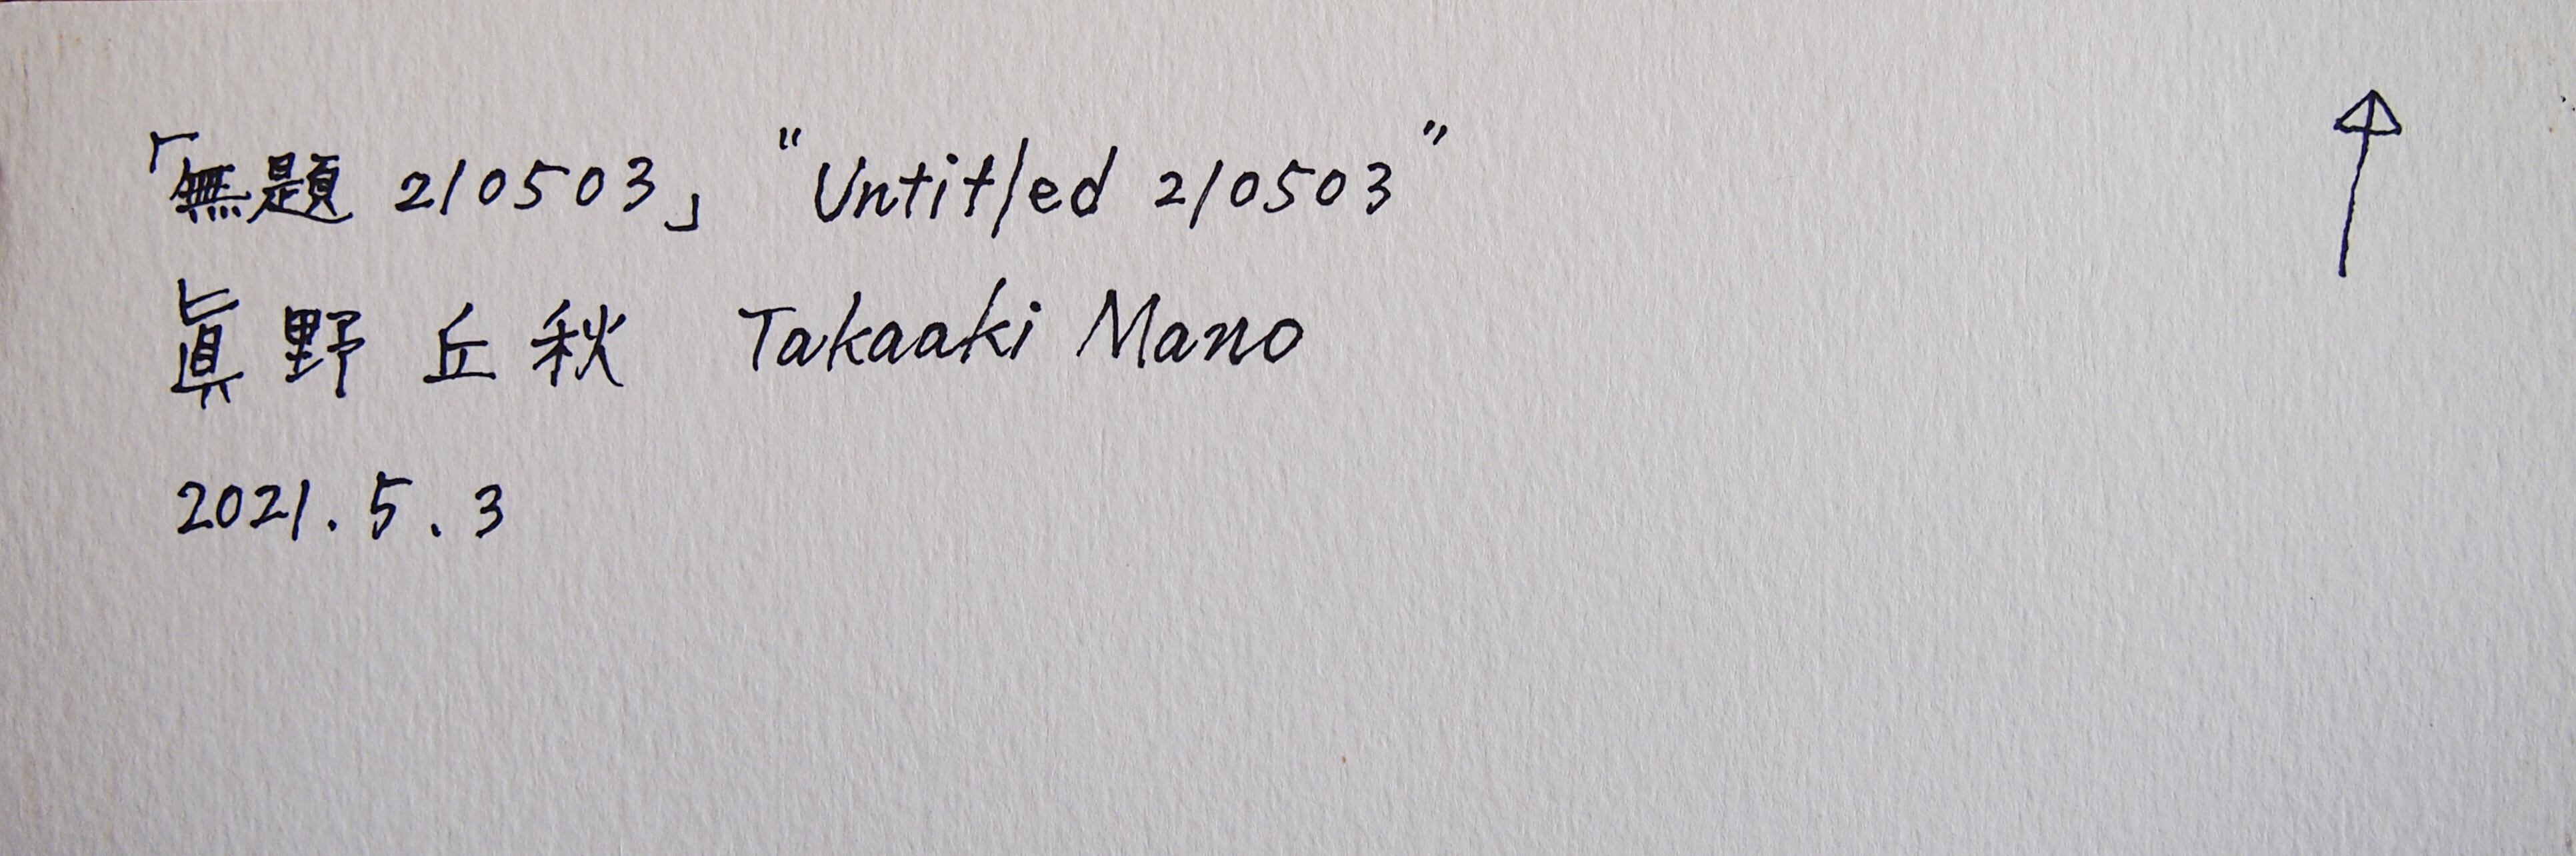 「無題 210503」 "Untitled 210503"
眞野丘秋 Takaaki Mano
2021.5.3